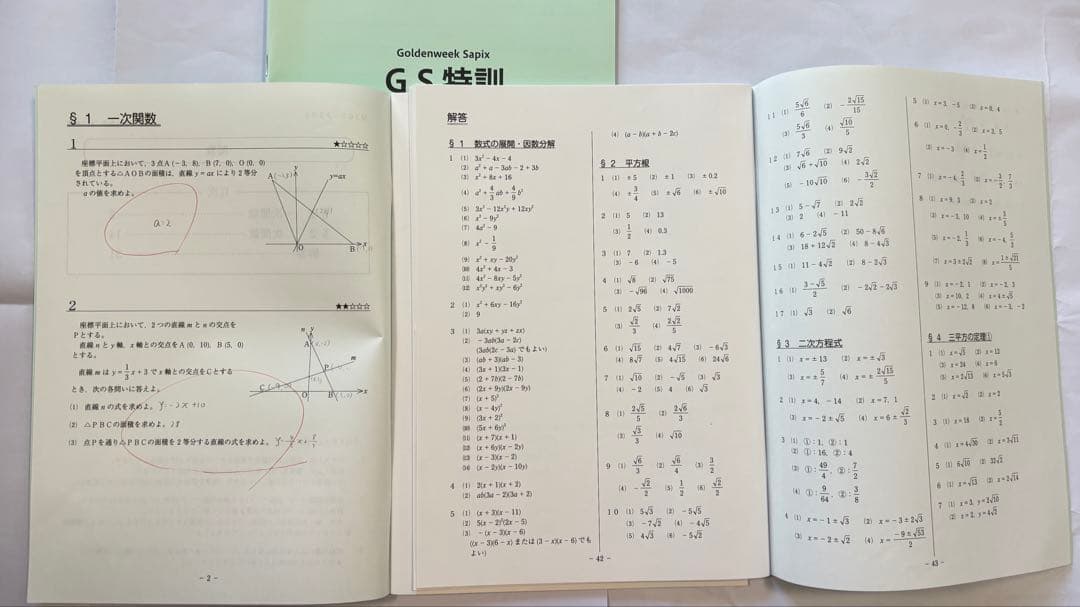 Goldenweek Sapix
G S 特訓
§1 一次関数
1
★☆☆☆☆
座標平面上において,3点A(−3, 8),B(7, 0),O(0, 0)
を頂点とする△AOBの面積は,直線y=axにより2等分
されている。
aの値を求めよ。
a=2
y
A
y=ax
O
B
x
2
★★☆☆☆
座標平面上において,2つの直線mとnの交点を
Pとする。
直線nとy軸,x軸との交点をA(0, 10),B(5, 0)
とする。
直線mはy=1/3x+3でx軸との交点をCとする
とき,次の各問いに答えよ。
(1) 直線nの式を求めよ。 y=-2x+10
(2) △PBCの面積を求めよ。
(3) 点Pを通り△PBCの面積を2等分する直線の式を求めよ。
n
y
A
m
P
C
O
B
x
− 2 −
解答
§1 数式の展開・因数分解
1 (1) 3x²−4x−4
(2) a²+a−3ab−2+3b
(3) x²+8x+16
(4) a²+4/3ab+4/9b²
(5) 3x³−12x²y+12xy²
(6) x²−9y²
(7) 4a²−9
(8) x²−1/9
(9) x²+xy−20y²
(10) 4x²+4x−3
(11) 4x²−8xy−5y²
(12) x²y²+xy²−6y²
2 (1) x²+6xy−16y²
(2) 9
3 (1) 3a(xy+yz+zx)
(2) −3ab(3a−2c)
(3ab(2c−3a)でもよい)
(3) (ab+3)(ab−3)
(4) (3x+1)(3x−1)
(5) (2+7b)(2−7b)
(6) (2x+9y)(2x−9y)
(7) (x+5)²
(8) (x−4y)²
(9) (3x+2)²
(10) (5x+6y)²
(11) (x+7)(x+1)
(12) (x+6y)(x−2y)
(13) (x−3)(x−2)
(14) (x−2y)(x−10y)
4 (1) 2(x+1)(x+2)
(2) ab(3a−2)(3a+2)
5 (1) (x+3)(x−11)
(2) 5(x−2)²(2x−5)
(3) −(x−3)(x−6)
((x−3)(6−x)または(3−x)(x−6)でも
よい)
(4) (a−b)(a+b−2c)
§2 平方根
1 (1) ±5 (2) ±1 (3) ±0.2
(4) ±3/4 (5) ±√6 (6) ±√10
2 (1) 5 (2) 13
(3) 1/2 (4) 0.3
3 (1) 7 (2) 1.3
(3) −6 (4) −5
4 (1) √8 (2) √75
(3) −√96 (4) √1000
5 (1) 2√5 (2) 7√2
(3) √2/3 (4) 2√2/5
6 (1) √15 (2) 4√7 (3) −6√3
(4) 8√7 (5) 4√15 (6) 24√6
7 (1) √10 (2) −√5 (3) √3
(4) −2 (5) 4 (6) √3
8 (1) 2√5/5 (2) 2√6/3
(3) √3/3 (4) √10
9 (1) √6/3 (2) √6/4 (3) 3/2
(4) −√2/2 (5) 1/2 (6) √2/2
10 (1) 5√3 (2) −5√5
(3) −7√2 (4) −4√5
(5) 4√3 (6) −5√2
− 42 −
11 (1) 5√6/6 (2) −2√15/15
(3) 5√6/3 (4) √10/5
12 (1) 7√6 (2) 9√2
(3) √6+√10 (4) 2√2
(5) −10√10 (6) −3√2/2
13 (1) 5−√7 (2) 2√2
(3) 2 (4) −11
14 (1) 6−2√5 (2) 50−8√6
(3) 18+12√2 (4) 8−4√3
15 (1) 11−4√2 (2) 8−2√3
16 (1) 3−√5/2 (2) −2√2−2√3
17 (1) √3 (2) √6
§3 二次方程式
1 (1) x=±13 (2) x=±√3
(3) x=±5/7 (4) x=±2√15/5
2 (1) x=4, −14 (2) x=7, 1
(3) x=−2±√5 (4) x=6±√2/3
3 (1) ①:1, ②:1
(2) ①:16, ②:4
(3) ①:49/4, ②:7/2
(4) ①:9/64, ②:3/8
4 (1) x=−1±√3 (2) x=−3±2√3
(3) x=−2±√2 (4) x=−9±√53/2
5 (1) x=3, −5 (2) x=0, 4
6 (1) x=0, −2/3 (2) x=2, 5
(3) x=−3 (4) x=1/2
7 (1) x=−4, 2/3 (2) x=3/2, 7/3
8 (1) x=9, 3 (2) x=2
(3) x=−3, 10 (4) x=±5/3
(5) x=−2, 1/3 (6) x=−4, 5/3
(7) x=3±2√2 (8) x=1±√21/5
9 (1) x=−2, 1 (2) x=−2, 3
(3) x=10, 2 (4) x=4±√5
(5) x=−12, 8 (6) x=−3, −2
§4 三平方の定理①
1 (1) x=√5 (2) x=12
(3) x=24 (4) x=6
(5) x=2√13 (6) x=5√3
2 (1) x=√2 (2) x=2
3 (1) x=18 (2) x=5/2
4 (1) x=4√30 (2) x=3√11
5 (1) 6√10 (2) 32√2
6 (1) x=√13 (2) x=2√14
7 (1) x=3, y=2√10
(2) x=2, y=4√2
− 43 −